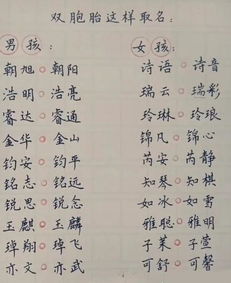 双胞胎这样取名：
男孩： 女孩：
朝旭○朝阳 诗语○诗音
浩明○浩亮 瑞云○瑞彩
睿达○睿通 玲琳○玲琅
金华○金山 锦凡○锦心
钧安○钧平 芮安○芮静
铭志○铭远 知琴○知棋
锐思○锐念 如冰○如雪
玉麒○玉麟 雅聪○雅明
璋翔○璋飞 子茉○子萱
亦文○亦武 可舒○可馨